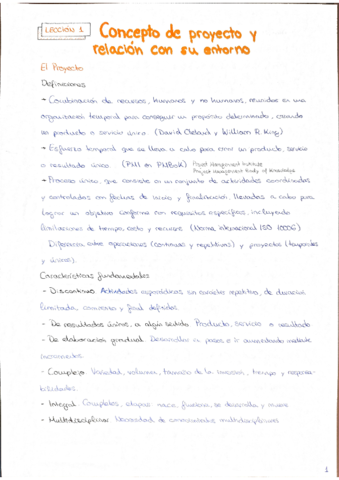 LECCIÓN 1
Concepto de proyecto y
relación con su entorno
El Proyecto
Definiciones
- Combinación de recursos, humanos y no humanos, reunidos en una
organización temporal para conseguir un propósito determinado, creando
un producto o servicio único. (David Cleland y William R. King)
- Esfuerzo temporal que se lleva a cabo para crear un producto, servicio
o resultado único. (PMI en PMBoK) Project Management Institute
Project Management Body of Knowledge
- Proceso único, que consiste en un conjunto de actividades coordinadas
y controladas con fechas de inicio y finalización, llevadas a cabo para
lograr un objetivo conforme con requisitos específicos, incluyendo
limitaciones de tiempo, costo y recursos (Norma internacional ISO 10006)
Diferencia entre operaciones (continuas y repetitivas) y proyectos (temporales
y únicos).
Características fundamentales
- Discontinuo. Actividades esporádicas sin carácter repetitivo, de duración
limitada, comienzo y final definidos
- De resultados únicos, en algún sentido. Producto, servicio o resultado
- De elaboración gradual. Desarrollar en pasos e ir aumentando mediante
incrementos.
- Complejo. Variedad, volumen, tamaño de la inversión, tiempo y responsa-
bilidades.
- Integral. Completos, etapas: nace, funciona, se desarrolla y muere
- Multidisciplinar. Necesidad de conocimientos multidisciplinares
1